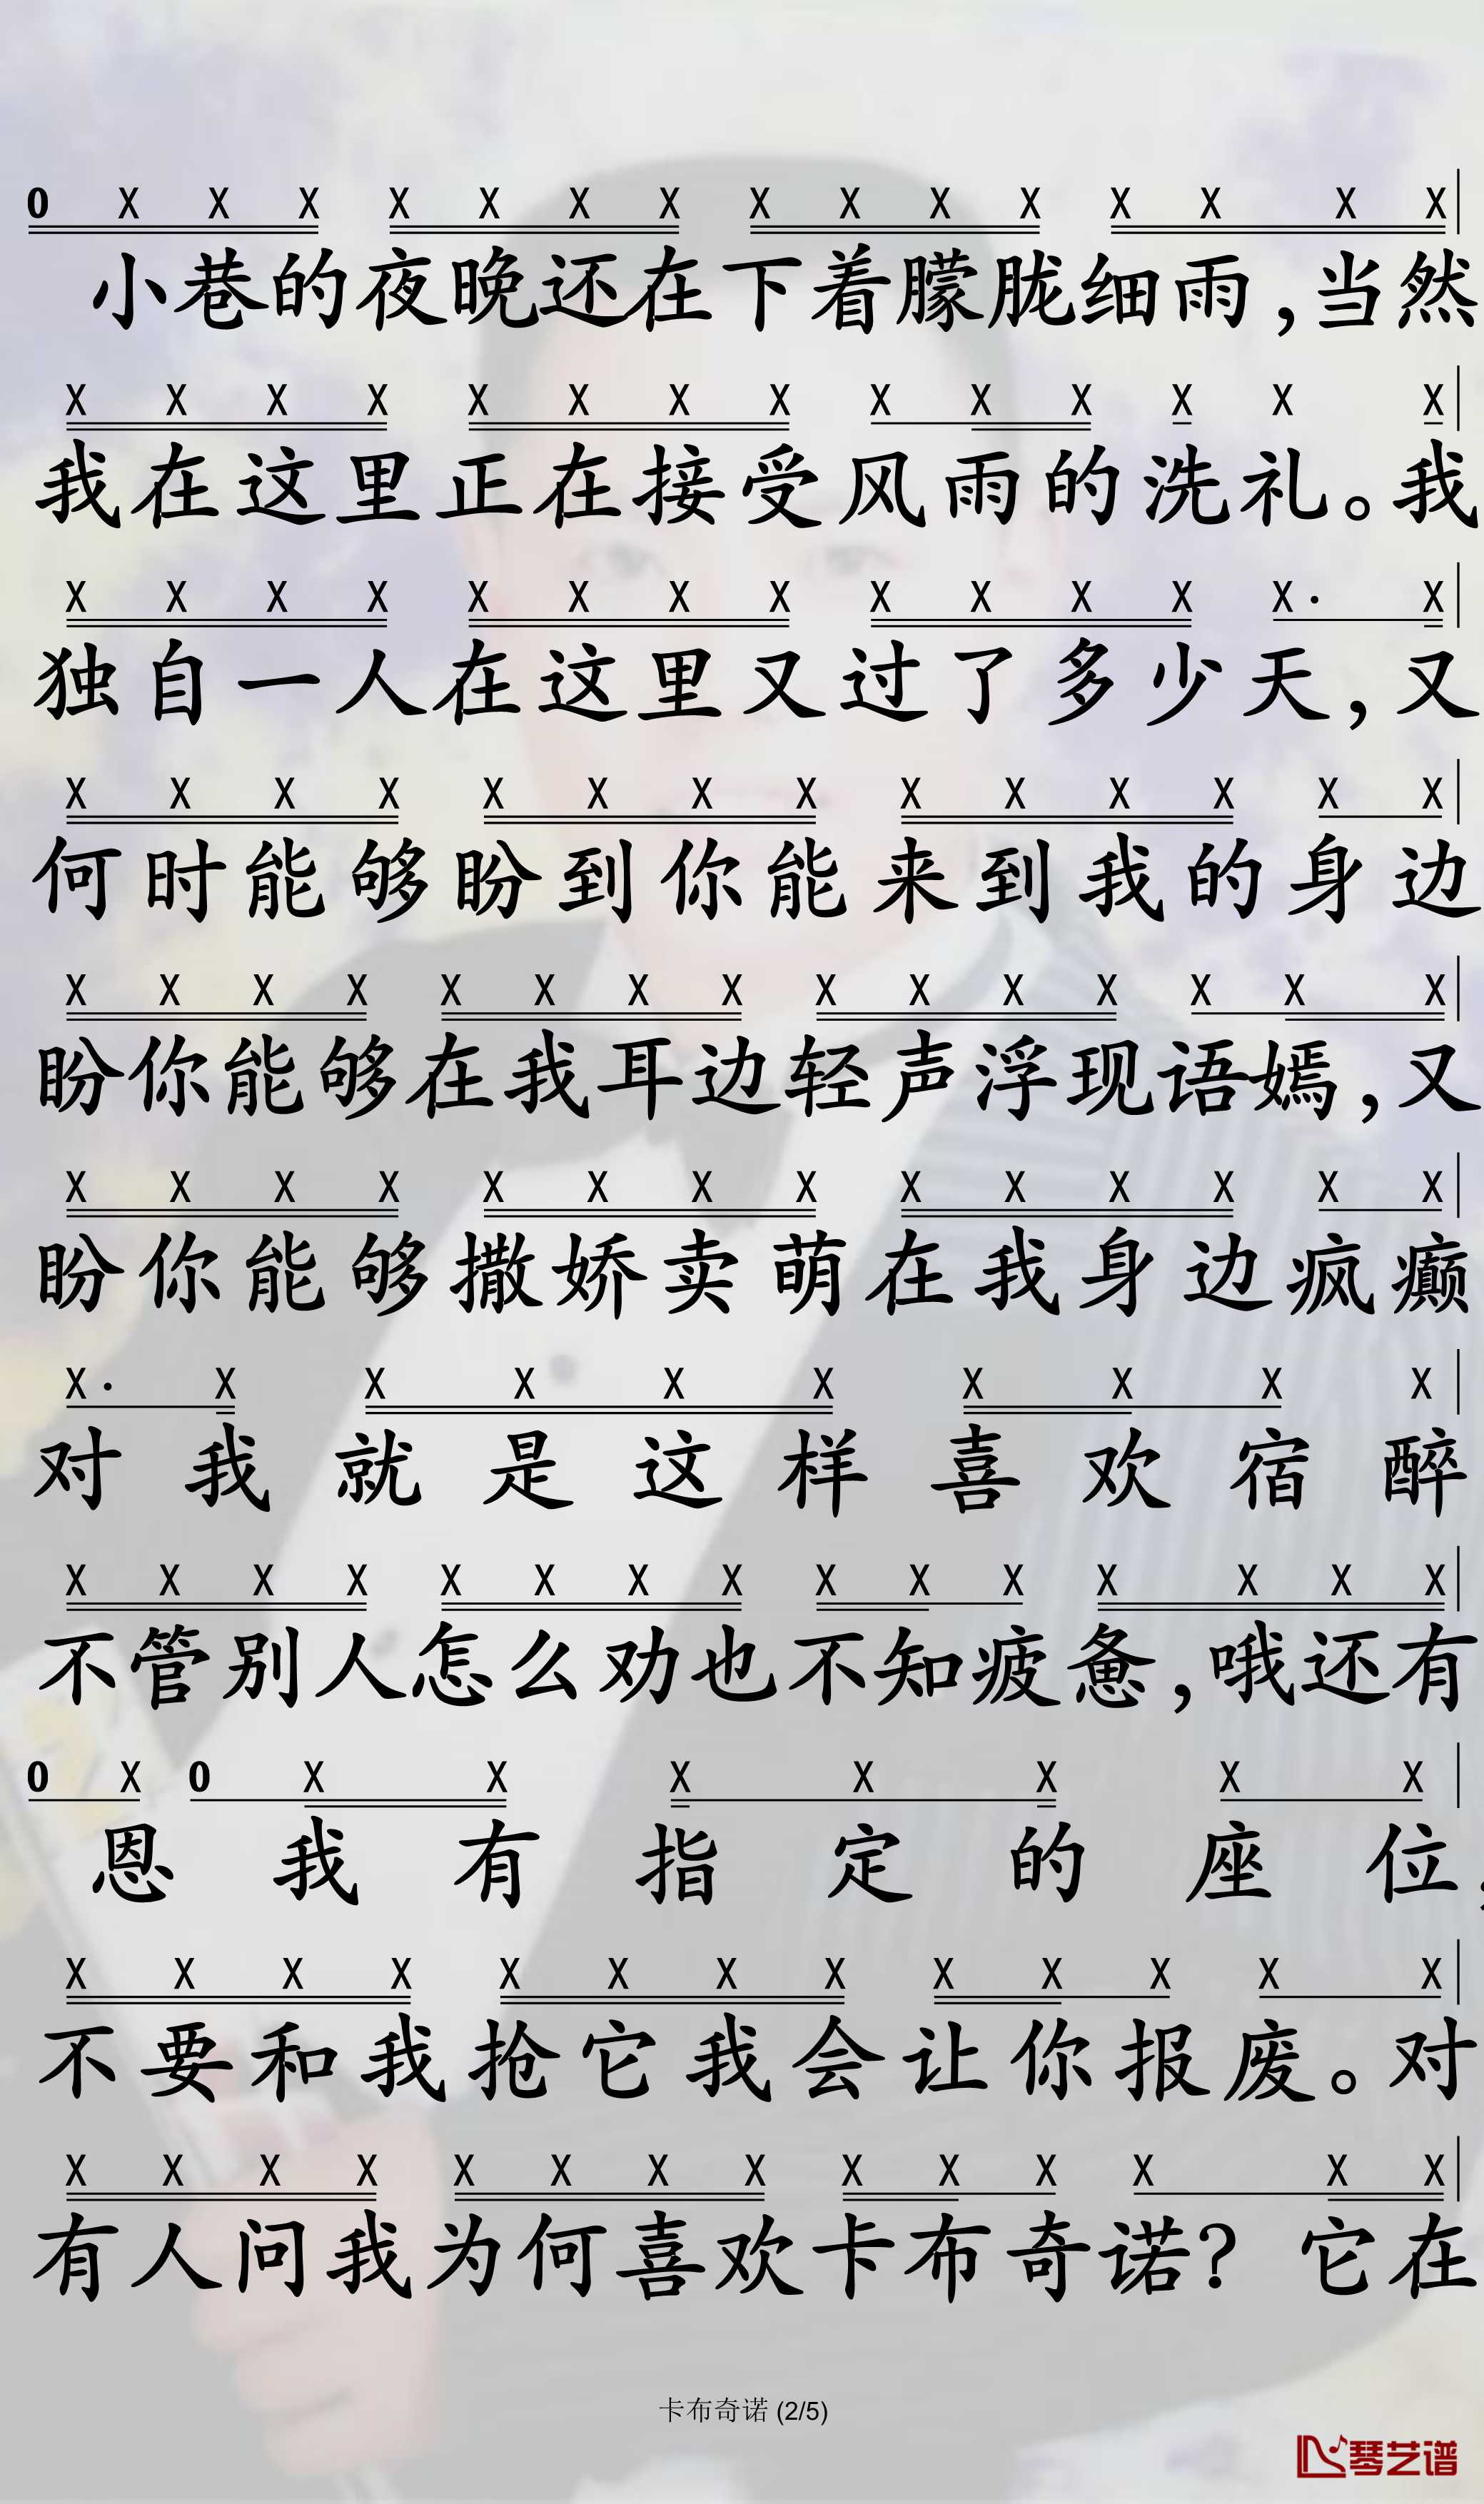 0 X X X X X X X X X X X X X X X
小巷的夜晚还在下着朦胧细雨,当然
X X X X X X X X X X X X X X
我在这里正在接受风雨的洗礼。我
X X X X X X X X X X X X X· X
独自一人在这里又过了多少天,又
X X X X X X X X X X X X X X
何时能够盼到你能来到我的身边
X X X X X X X X X X X X X X X
盼你能够在我耳边轻声浮现语嫣,又
X X X X X X X X X X X X X X
盼你能够撒娇卖萌在我身边疯癫
X· X X X X X X X X X
对我就是这样喜欢宿醉
X X X X X X X X X X X X X X X
不管别人怎么劝也不知疲惫,哦还有
0 X 0 X X X X X X X
恩我有指定的座位,
X X X X X X X X X X X X X
不要和我抢它我会让你报废。对
X X X X X X X X X X X X X X
有人问我为何喜欢卡布奇诺? 它在
卡布奇诺 (2/5)
琴艺谱